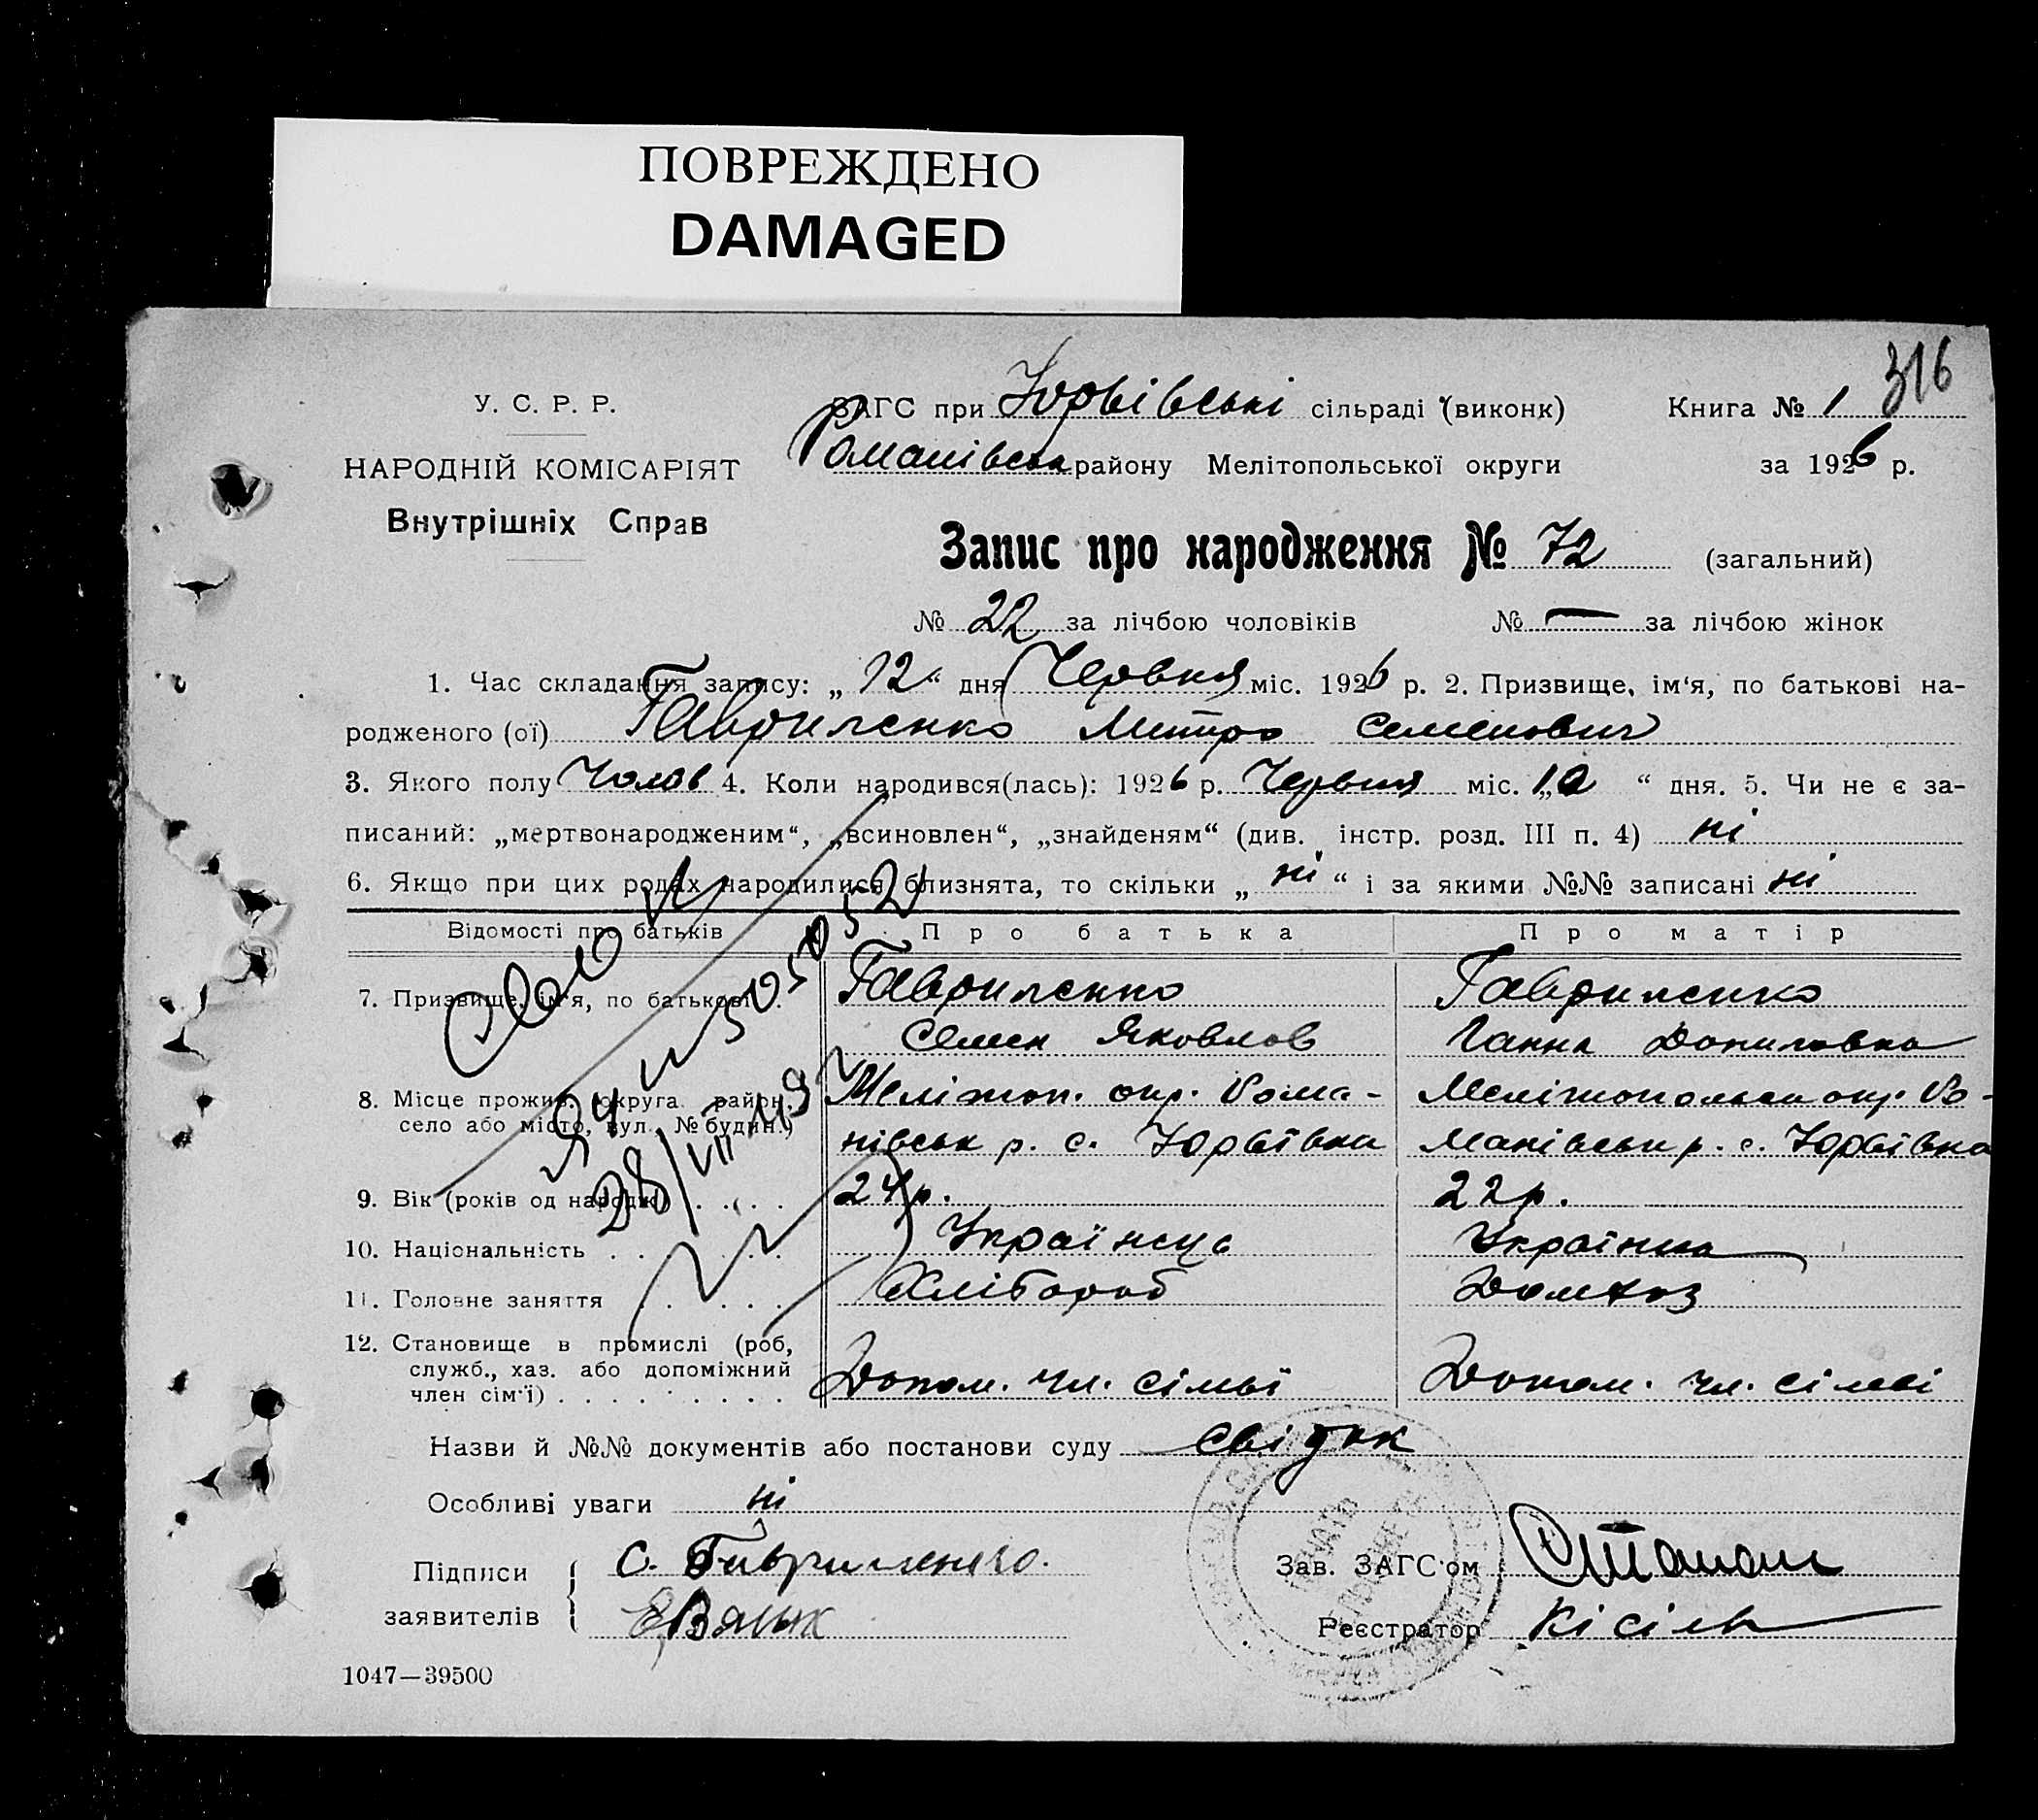 ПОВРЕЖДЕНО
DAMAGED
316
У. С. Р. Р.
ЗАГС при Юрвівські сільраді (виконк)
Книга № 1
НАРОДНІЙ КОМІСАРІЯТ
Романівськ району Мелітопольської округи
за 1926 р.
Внутрішніх Справ
Запис про народження № 72 (загальний)
№ 22 за лічбою чоловіків № — за лічбою жінок
1. Час складання запису: „ 12 “ дня Червня міс. 1926 р. 2. Призвище, ім'я, по батькові на-
родженого (ої) Гавриленко Митро Семенович
3. Якого полу Чолов 4. Коли народився(лась): 1926 р. Червня міс. „10 “ дня. 5. Чи не є за-
писаний: „мертвонародженим“, „всиновлен“, „знайденям“ (див. інстр. розд. III п. 4) ні
6. Якщо при цих родах народилися близнята, то скільки „ ні “ і за якими №№ записані ні
Відомості про батьків
Про батька
Про матір
7. Призвище, ім'я, по батькові
Гавриленко
Семен Яковлов
Гавриленко
Ганна Даниловна
8. Місце прожив. (округа район,
село або місто, вул., № будин.)
Мелітоп. окр. Рома-
нівськ р. с. Юрвівка
Мелітопольськ окр. Ро-
манівськ р. с. Юрвівка
28/VII 49
9. Вік (років од народж.)
24 р.
22 р.
10. Національність
Українець
Українка
11. Головне заняття
Хлібороб
Домхоз
12. Становище в промислі (роб,
служб., хаз. або допоміжний
член сім'ї)
Допом. чл. сімьї
Допом. чл. сімьі
Назви й №№ документів або постанови суду Свідок
Особливі уваги ні
Підписи
заявителів
С. Гавриленко.
Зав. ЗАГС'ом
Реєстратор Кісіль
1047—39500